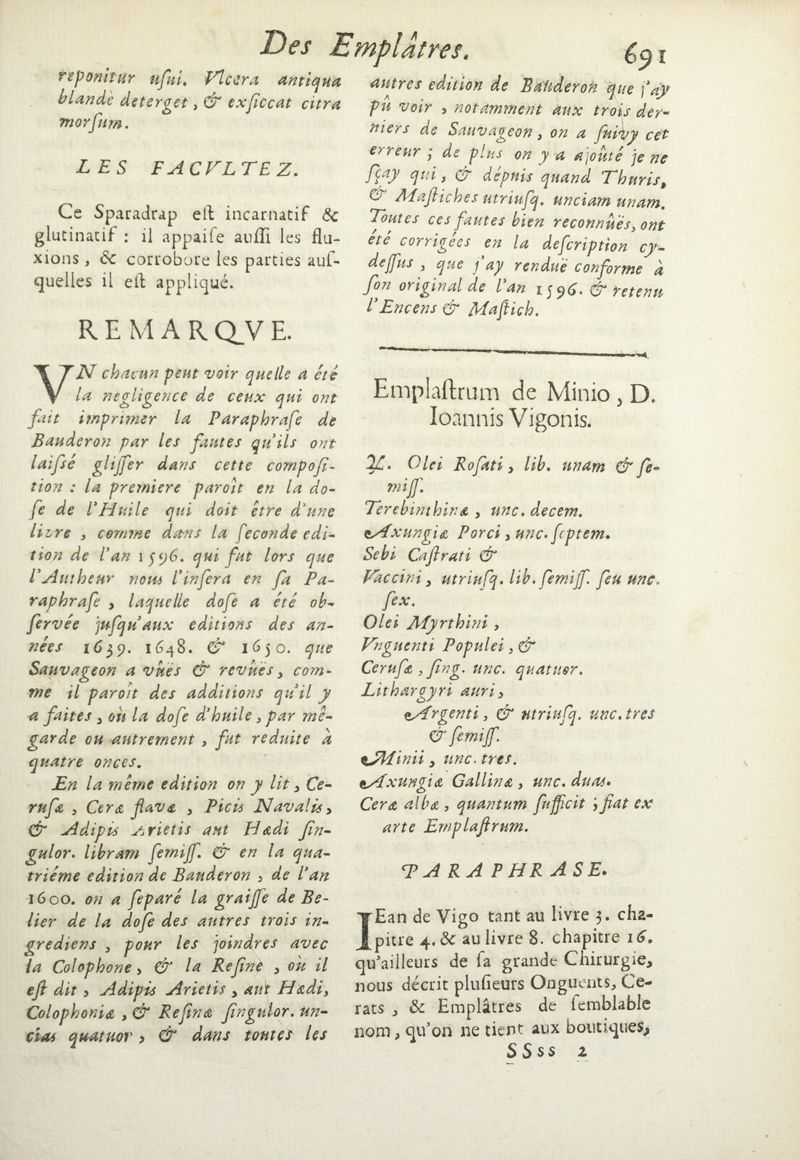 Des Emplâtres. 691
reponitur usui. Vlcera antiqua
blandè deterget, & exsiccat citra
morsum.
LES FACVLTEZ.
Ce Sparadrap est incarnatif &
glutinatif : il appaise aussi les flu-
xions, & corrobore les parties aus-
quelles il est appliqué.
REMARQVE.
VN chacun peut voir quelle a été
la negligence de ceux qui ont
fait imprimer la Paraphrase de
Bauderon par les fautes qu'ils ont
laissé glisser dans cette composi-
tion : la premiere paroît en la do-
se de l'Huile qui doit être d'une
livre , comme dans la seconde edi-
tion de l'an 1596. qui fut lors que
l'Autheur nous l'insera en sa Pa-
raphrase , laquelle dose a été ob-
servée jusqu'aux editions des an-
nées 1639. 1648. & 1650. que
Sauvageon a vûës & revûës, com-
me il paroît des additions qu'il y
a faites, où la dose d'huile, par mê-
garde ou autrement , fut reduite à
quatre onces.
En la même edition on y lit, Ce-
rusæ , Ceræ flavæ , Picis Navalis,
& Adipis Arietis aut Hædi sin-
gulor. libram semiss. & en la qua-
triéme edition de Bauderon , de l'an
1600. on a separé la graisse de Be-
lier de la dose des autres trois in-
grediens , pour les joindres avec
la Colophone, & la Resine , où il
est dit , Adipis Arietis , aut Hædi,
Colophoniæ , & Resinæ singulor. un-
cias quatuor , & dans toutes les
autres edition de Bauderon que j'ay
pû voir , notamment aux trois der-
niers de Sauvageon, on a suivy cet
erreur ; de plus on y a ajoûté je ne
sçay qui, & dépuis quand Thuris,
& Mastiches utriusq. unciam unam.
Toutes ces fautes bien reconnûës, ont
été corrigées en la description cy-
dessus , que j'ay renduë conforme à
son original de l'an 1596. & retenu
l'Encens & Mastich.
Emplastrum de Minio, D.
Ioannis Vigonis.
℞. Olei Rosati, lib. unam & se-
miss.
Terebinthinæ , unc. decem.
Axungiæ Porci, unc. septem.
Sebi Castrati &
Vaccini, utriusq. lib. semiss. seu unc.
sex.
Olei Myrthini ,
Vnguenti Populei, &
Cerusæ , sing. unc. quatuor.
Lithargyri auri,
Argenti, & utriusq. unc. tres
& semiss.
Minii , unc. tres.
Axungiæ Gallinæ , unc. duas.
Ceræ albæ , quantum sufficit ; fiat ex
arte Emplastrum.
PARAPHRASE.
IEan de Vigo tant au livre 3. cha-
pitre 4. & au livre 8. chapitre 16.
qu'ailleurs de sa grande Chirurgie,
nous décrit plusieurs Onguents, Ce-
rats , & Emplâtres de semblable
nom, qu'on ne tient aux boutiques,
SSss 2